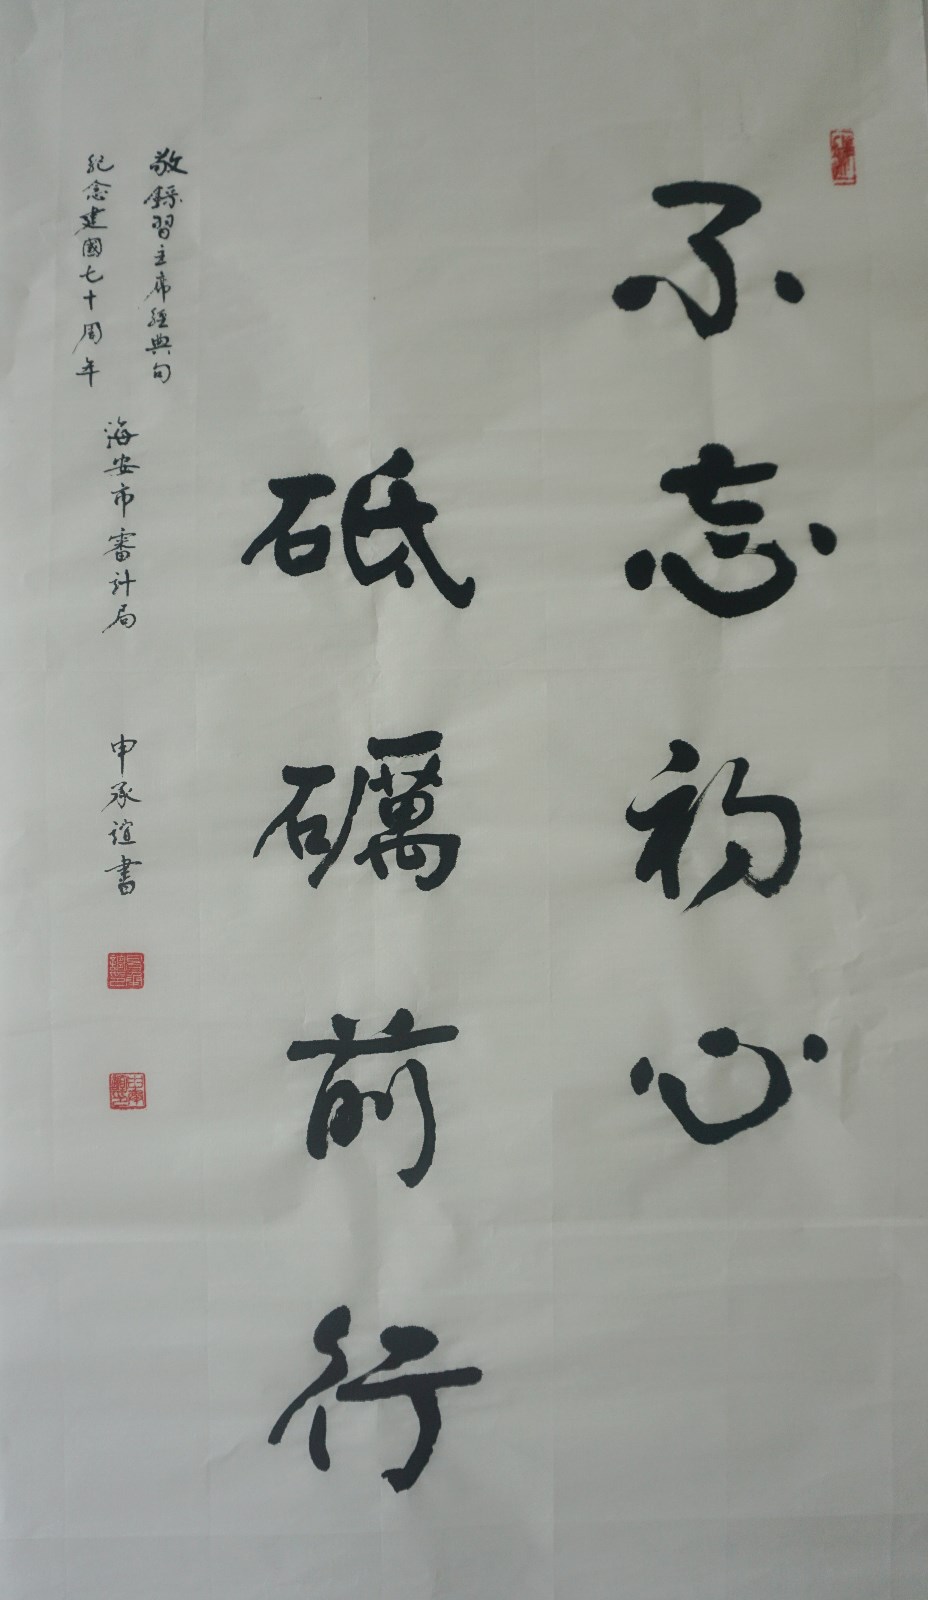 不忘初心
砥礪前行
敬錄習主席經典句
紀念建國七十周年
海安市審計局
申承誼書